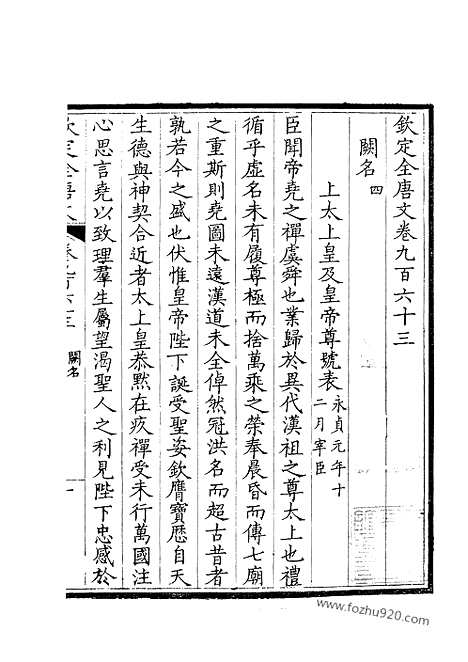 欽定全唐文卷九百六十三
闕名四
上太上皇及皇帝尊號表永貞元年十
二月宰臣
臣聞帝堯之禪虞舜也業歸於異代漢祖之尊太上也禮
循乎虛名未有履尊極而捨萬乘之榮奉晨昏而傳七廟
之重斯則堯圖未遠漢道未全倬然冠洪名而超古昔者
孰若今之盛也伏惟皇帝陛下誕受聖姿欽膺寶歷自天
生德與神契合近者太上皇恭默在疚禪受未行萬國注
心思言堯以致理羣生屬望渴聖人之利見陛下忠感於
欽定全唐文
卷九百六十三
闕名
一
www.fozhu920.com